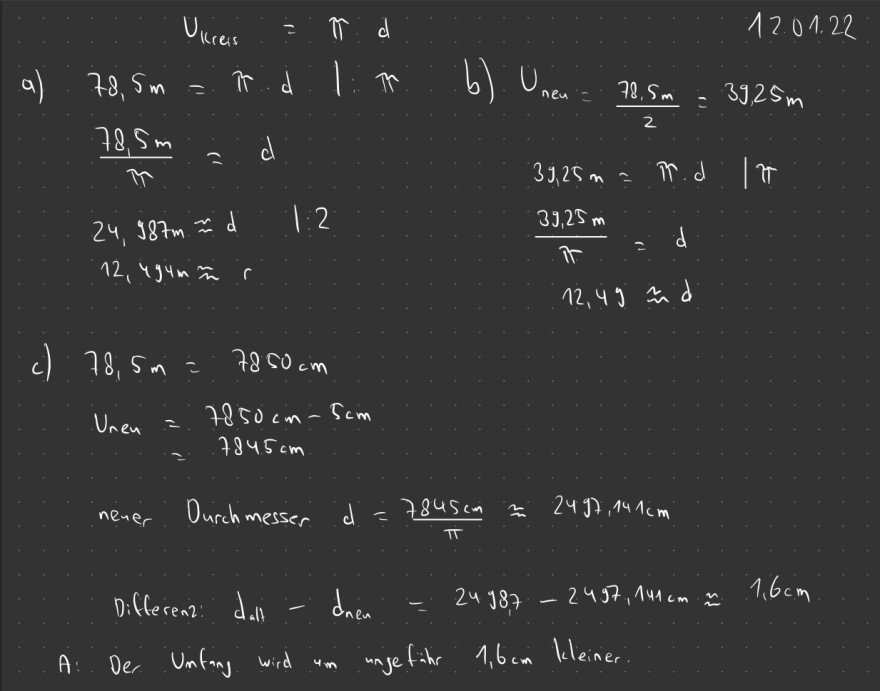 U_Kreis = π · d
12.01.22
a) 78,5m = π · d |: π
78,5m / π = d
24,987m ≈ d |:2
12,494m ≈ r
b) U_neu = 78,5m / 2 = 39,25m
39,25m = π · d |π
39,25m / π = d
12,49 ≈ d
c) 78,5m = 7850cm
U_neu = 7850cm - 5cm
= 7845cm
neuer Durchmesser d = 7845cm / π ≈ 2497,141cm
Differenz: d_alt - d_neu = 24987 - 2497,141cm ≈ 1,6cm
A: Der Umfang wird um ungefähr 1,6cm kleiner.